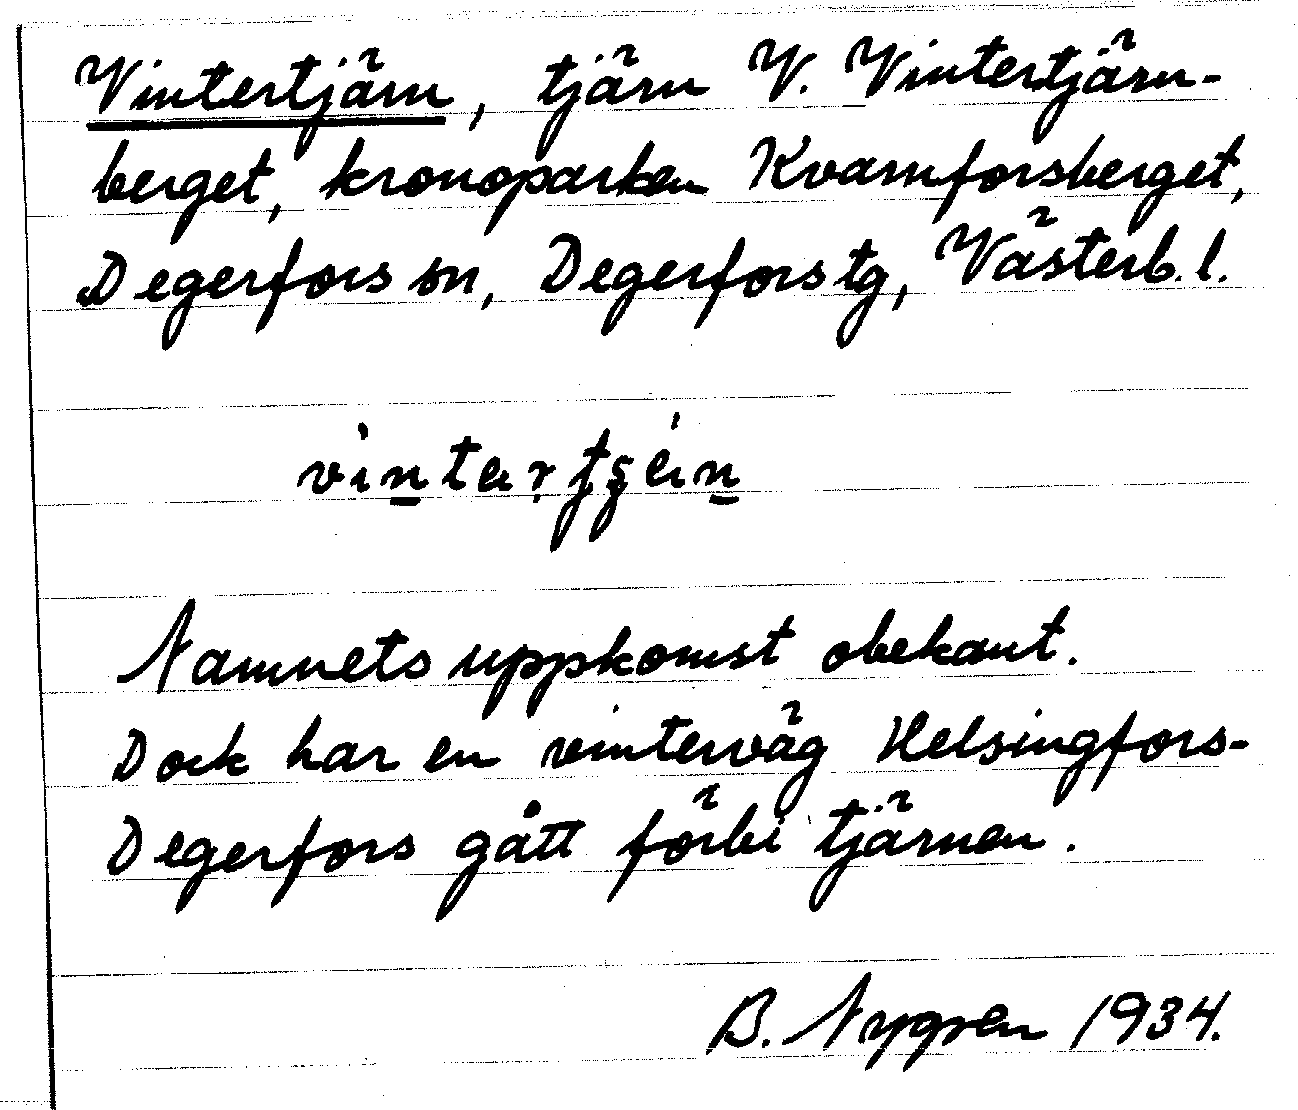 Vintertjärn, tjärn V. Vintertjärn-
berget, kronoparken Kvarnforsberget,
Degerfors sn, Degerfors tg, Västerb. l.
Namnets uppkomst obekant.
Dock har en vinterväg Helsingfors-
Degerfors gått förbi tjärnen.
B. Nygren 1934.